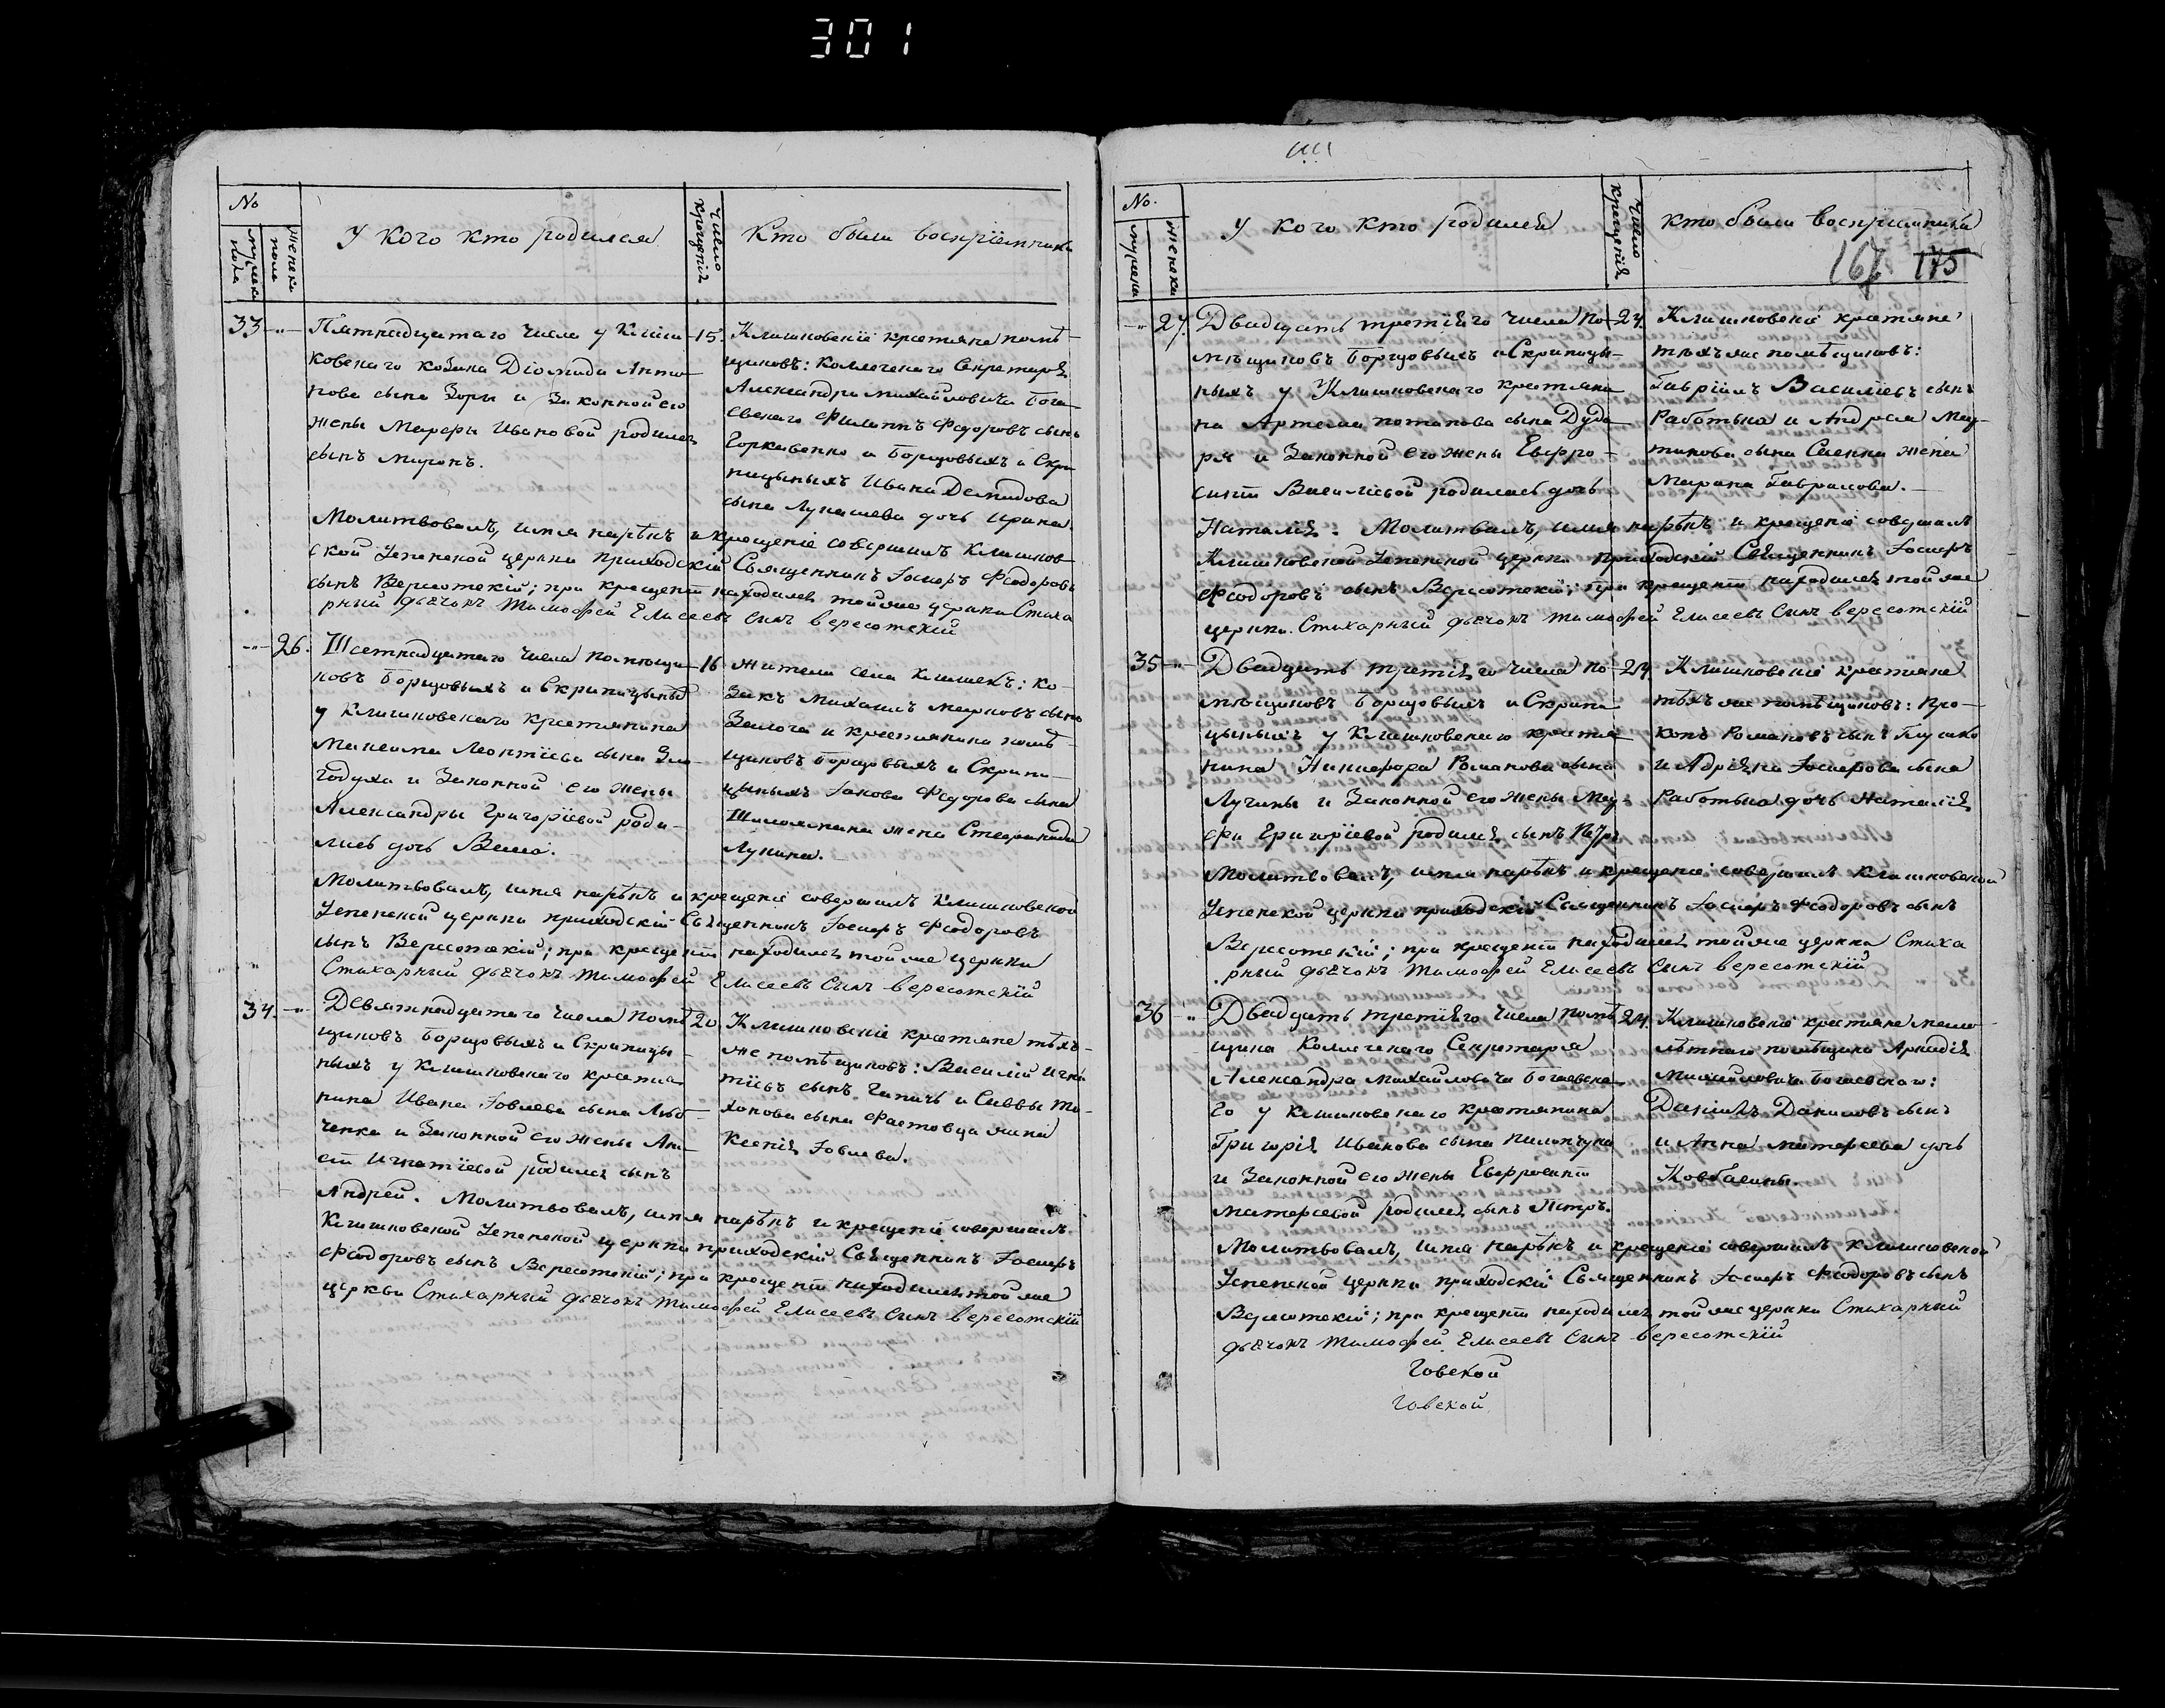 301
No
мужеска пола
женска пола
У кого кто родился
Число крещенія
Кто были воспріемники
33 -"- Пятнадцатаго числа у Клиш- 15.
ковскаго козака Діомида Анто-
нова сына Зоры и законной его
жены Марфы Ивановой родился
сынъ Миронъ.
Клишковскіе крестяне помѣ-
щиковъ: Коллежскаго Секретаря
Александра Михайловича Бога-
евскаго Филиппъ Федоровъ сынъ
Горкавенко и Борщовыхъ и Скри-
пицыныхъ Ивана Демидова
сына Лукашева дочь Ирина
Молитвовалъ, имя нарѣкъ и крещеніе совершилъ Клишков-
ской Успенской церкви приходскій Священникъ Іосифъ Феодоровъ
сынъ Вересотскій; при крещеніи находился той же церкви Стиха
рный дьячокъ Тимофей Елисеевъ сынъ Вересотскій
-"- 26. Шестнадцатаго числа помѣщи- 16
ковъ Борщовыхъ и Скрипицыныхъ
у Клишковскаго крестянина
Максима Леонтіева сына
годуха и законной его жены
Александры Григоріевой роди-
лась дочь
Жители села Клишекъ: ко-
закъ Михаилъ Марковъ сынъ
и крестянина помѣ-
щиковъ Борщовыхъ и Скрипи-
цыныхъ Іакова Федорова сына
жена Стефанида
Лукина.
Молитвовалъ, имя нарѣкъ и крещеніе совершилъ Клишковской
Успенской церкви приходскій Священникъ Іосифъ Феодоровъ
сынъ Вересотскій; при крещеніи находился той же церкви
Стихарный дьячокъ Тимофей Елисеевъ сынъ Вересотскій
34. -"- Девятнадцатаго числа помѣ- 20.
щиковъ Борщовыхъ и Скрипицы-
ныхъ у Клишковскаго крестя-
нина Ивана Іовлева сына
ченка и законной его жены
Игнатіевой родился сынъ
Клишковскіе крестяне тѣхъ-
же помѣщиковъ: Василій Игна-
тіевъ сынъ и Саввы
сына Фастовца жена
Ксенія Іовлева.
Андрей. Молитвовалъ, имя нарѣкъ и крещеніе совершилъ
Клишковской Успенской церкви приходскій Священникъ Іосифъ
Феодоровъ сынъ Вересотскій; при крещеніи находился той же
церкви Стихарный дьячокъ Тимофей Елисеевъ сынъ Вересотскій
No.
мужеска
женска
У кого кто родился
Число крещенія
Кто были воспріемники
167 175
-"- 27. Двадцать третіяго числа по- 24.
мѣщиковъ Борщовыхъ и Скрипицы-
ныхъ у Клишковскаго крестяни-
на Артема Потапова сына Дуда-
ря и законной его жены Евфро-
синіи Васильевой родилась дочь
Клишковскіе крестяне
тѣхъ же помѣщиковъ:
Гавріилъ Василіевъ сынъ
Работыка и Андрея
сына жена
Марина Гаврилова.
Наталія. Молитвовалъ, имя нарѣкъ и крещеніе совершилъ
Клишковской Успенской церкви приходскій Священникъ Іосифъ
Феодоровъ сынъ Вересотскій; при крещеніи находился той же
церкви. Стихарный дьячокъ Тимофей Елисеевъ сынъ Вересотскій
35 -"- Двадцать третіяго числа по- 24.
мѣщиковъ Борщовыхъ и Скрипи-
цыныхъ у Клишковскаго крестя-
нина Никифора Романова сына
Лучины и законной его жены Мар-
фы Григоріевой родился сынъ Петръ
Клишковскіе крестяне
тѣхъ же помѣщиковъ: Про-
копъ Романовъ сынъ
и Адріяна Іосифова сына
Работыка дочь Наталія
Молитвовалъ, имя нарѣкъ и крещеніе совершилъ Клишковской
Успенской церкви приходскій Священникъ Іосифъ Феодоровъ сынъ
Вересотскій; при крещеніи находился той же церкви Стиха
рный дьячокъ Тимофей Елисеевъ сынъ Вересотскій
36 -"- Двадцать третіяго числа помѣ- 24.
щика Коллежскаго Секретаря
Александра Михайловича Богаевска-
го у Клишковскаго крестянина
Григорія Иванова сына Пилипчука
и законной его жены Евфросиніи
Матфеевой родился сынъ Петръ.
Клишковскіе крестяне мало-
лѣтнаго помѣщика Аркадія
Михайловича Богаевскаго:
Даніилъ Даниловъ сынъ
и Анна Матфеева дочь
Ковбасины.
Молитвовалъ, имя нарѣкъ и крещеніе совершилъ Клишковской
Успенской церкви приходскій Священникъ Іосифъ Феодоровъ сынъ
Вересотскій; при крещеніи находился той же церкви Стихарный
дьячокъ Тимофей Елисеевъ сынъ Вересотскій
Говской
Говской